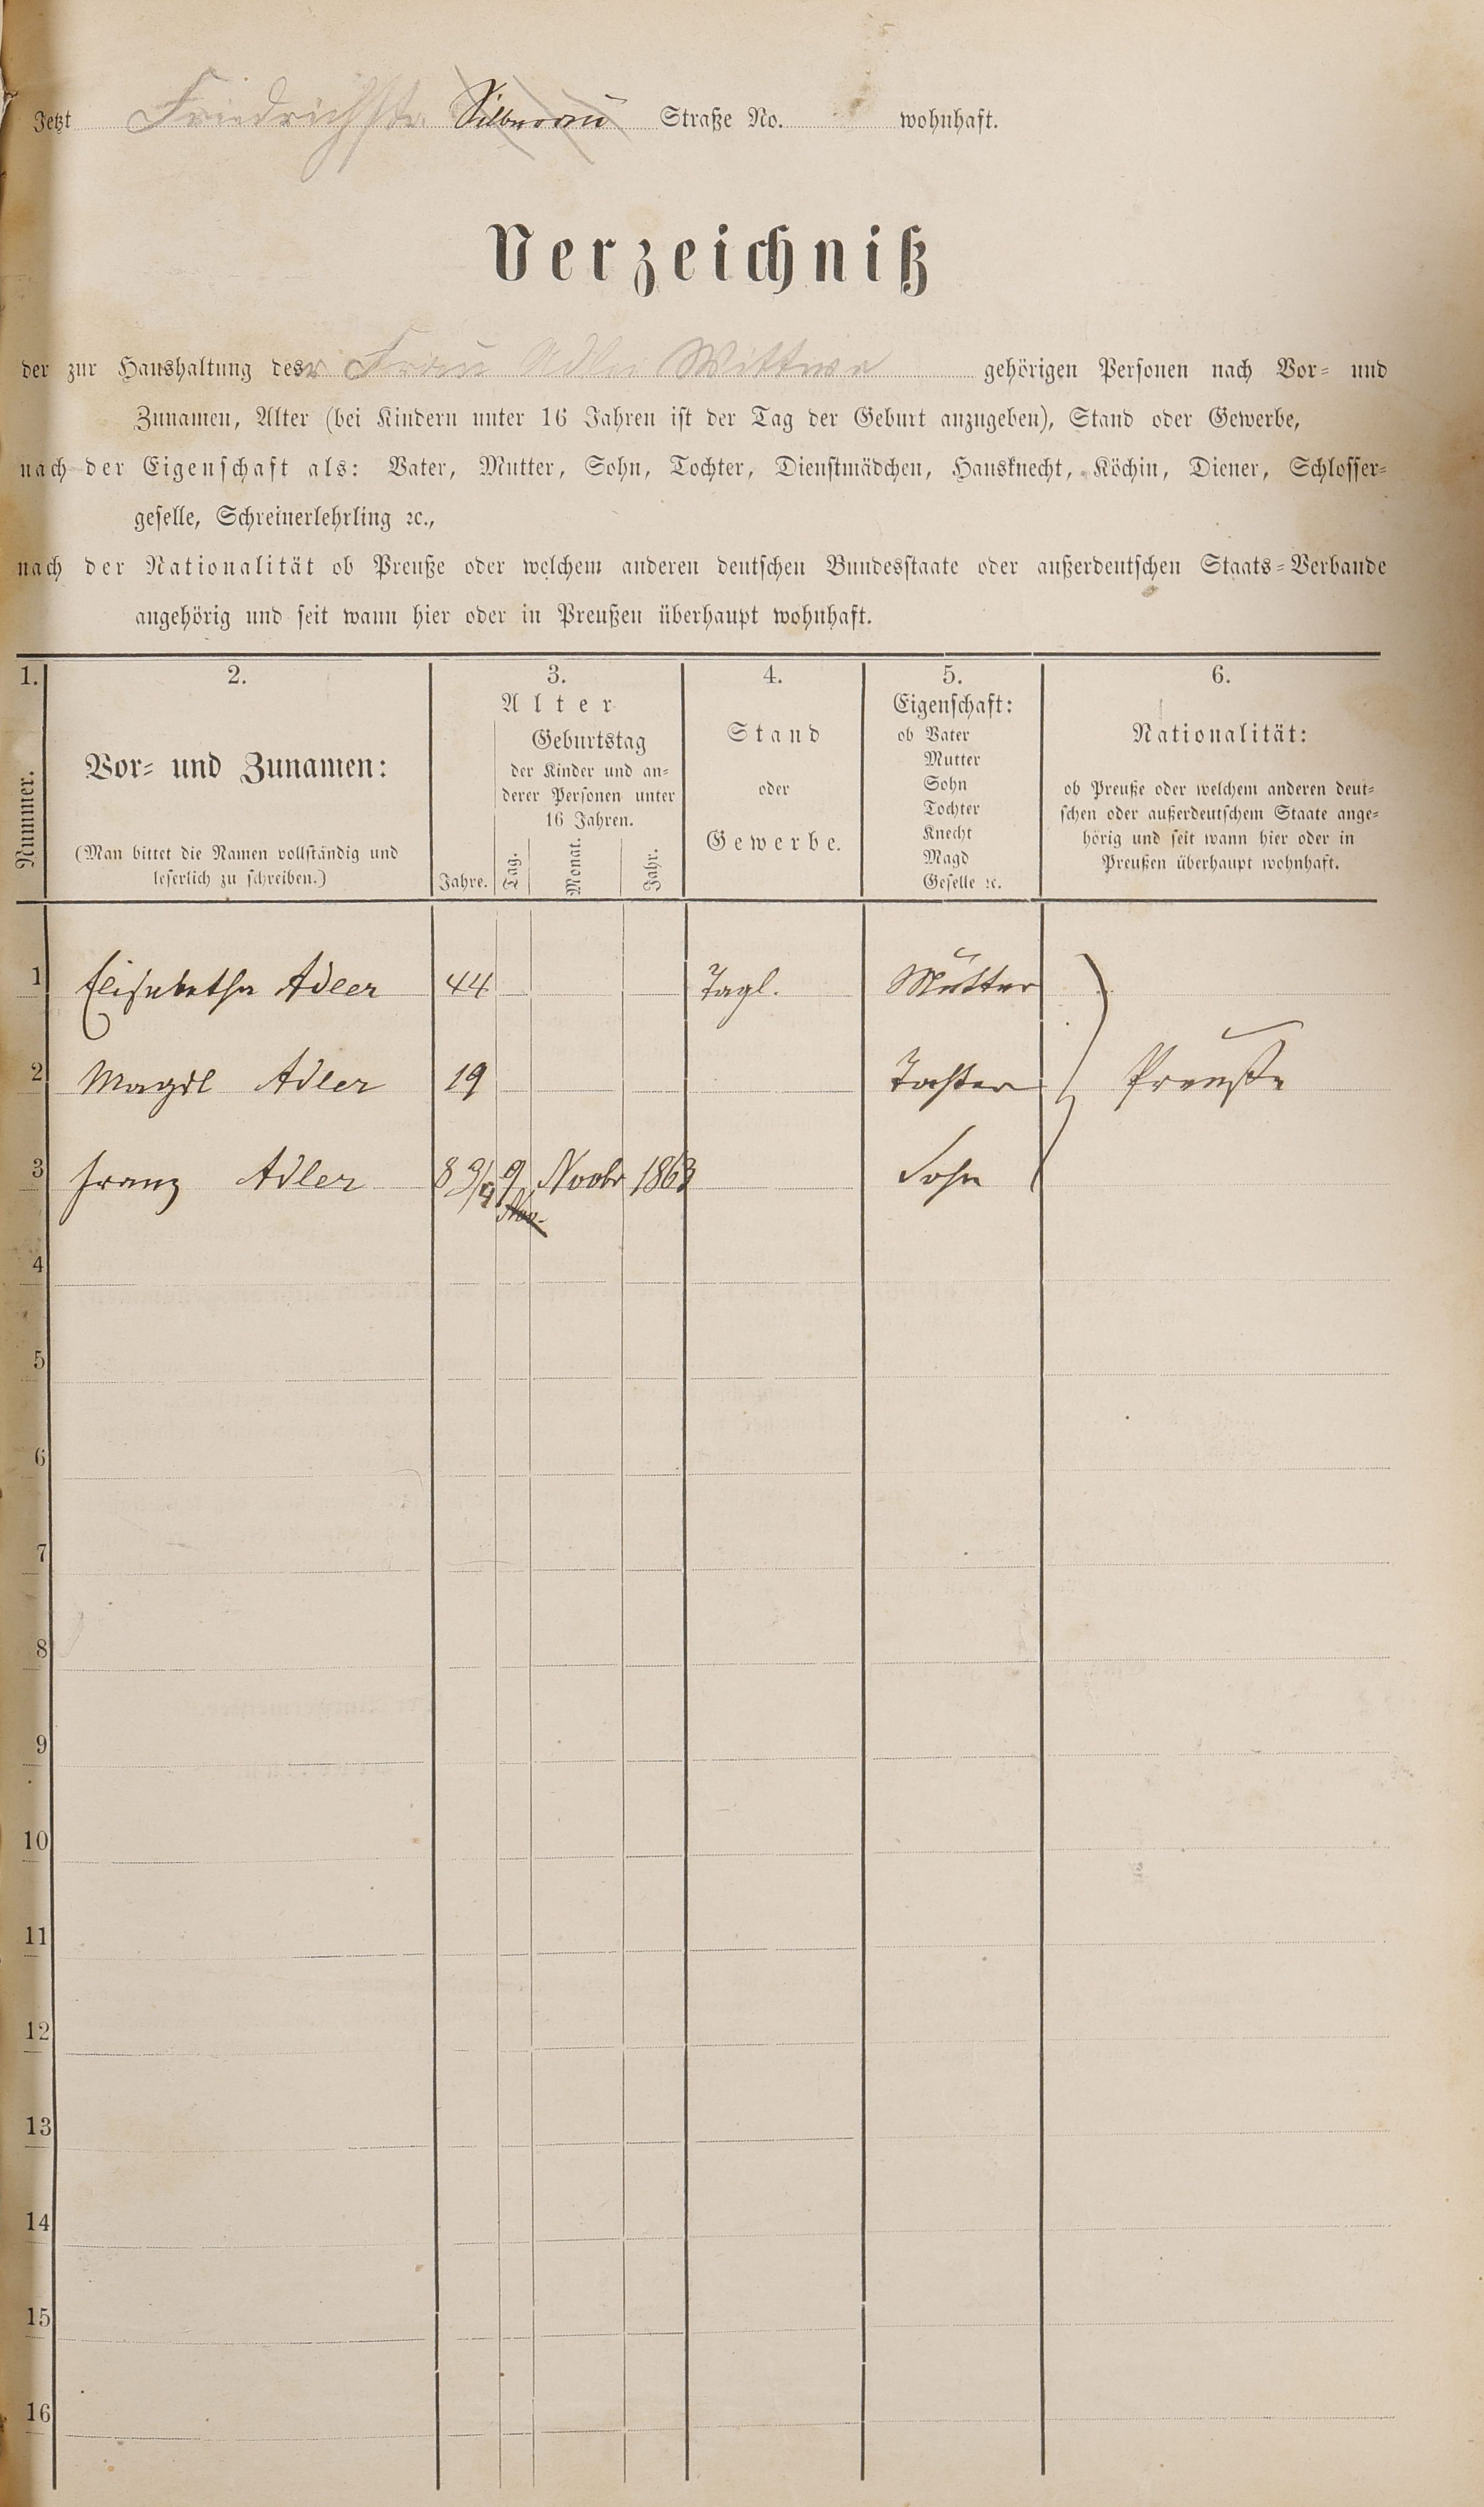 Jetzt Friedrichstr. Silberau Straße No. wohnhaft.
Verzeichniß
der zur Haushaltung des r Frau Adler Wittwe gehörigen Personen nach Vor- und
Zunamen, Alter (bei Kindern unter 16 Jahren ist der Tag der Geburt anzugeben), Stand oder Gewerbe,
nach der Eigenschaft als: Vater, Mutter, Sohn, Tochter, Dienstmädchen, Hausknecht, Köchin, Diener, Schlosser-
geselle, Schreinerlehrling ꝛc.,
nach der Nationalität ob Preuße oder welchem anderen deutschen Bundesstaate oder außerdeutschen Staats-Verbande
angehörig und seit wann hier oder in Preußen überhaupt wohnhaft.
1. 2. 3. 4. 5. 6.
Nummer.
Vor- und Zunamen:
(Man bittet die Namen vollständig und
leserlich zu schreiben.)
Alter
Jahre.
Geburtstag
der Kinder und an-
derer Personen unter
16 Jahren.
Tag. Monat. Jahr.
Stand
oder
Gewerbe.
Eigenschaft:
ob Vater
Mutter
Sohn
Tochter
Knecht
Magd
Geselle ꝛc.
Nationalität:
ob Preuße oder welchem anderen deut-
schen oder außerdeutschem Staate ange-
hörig und seit wann hier oder in
Preußen überhaupt wohnhaft.
1 Elisabetha Adler 44 Tagl. Mutter
2 Magdl Adler 19 Tochter Preuße
3 Franz Adler 8 3/4 9 Novbr 1863 Sohn
Nov.
4
5
6
7
8
9
10
11
12
13
14
15
16